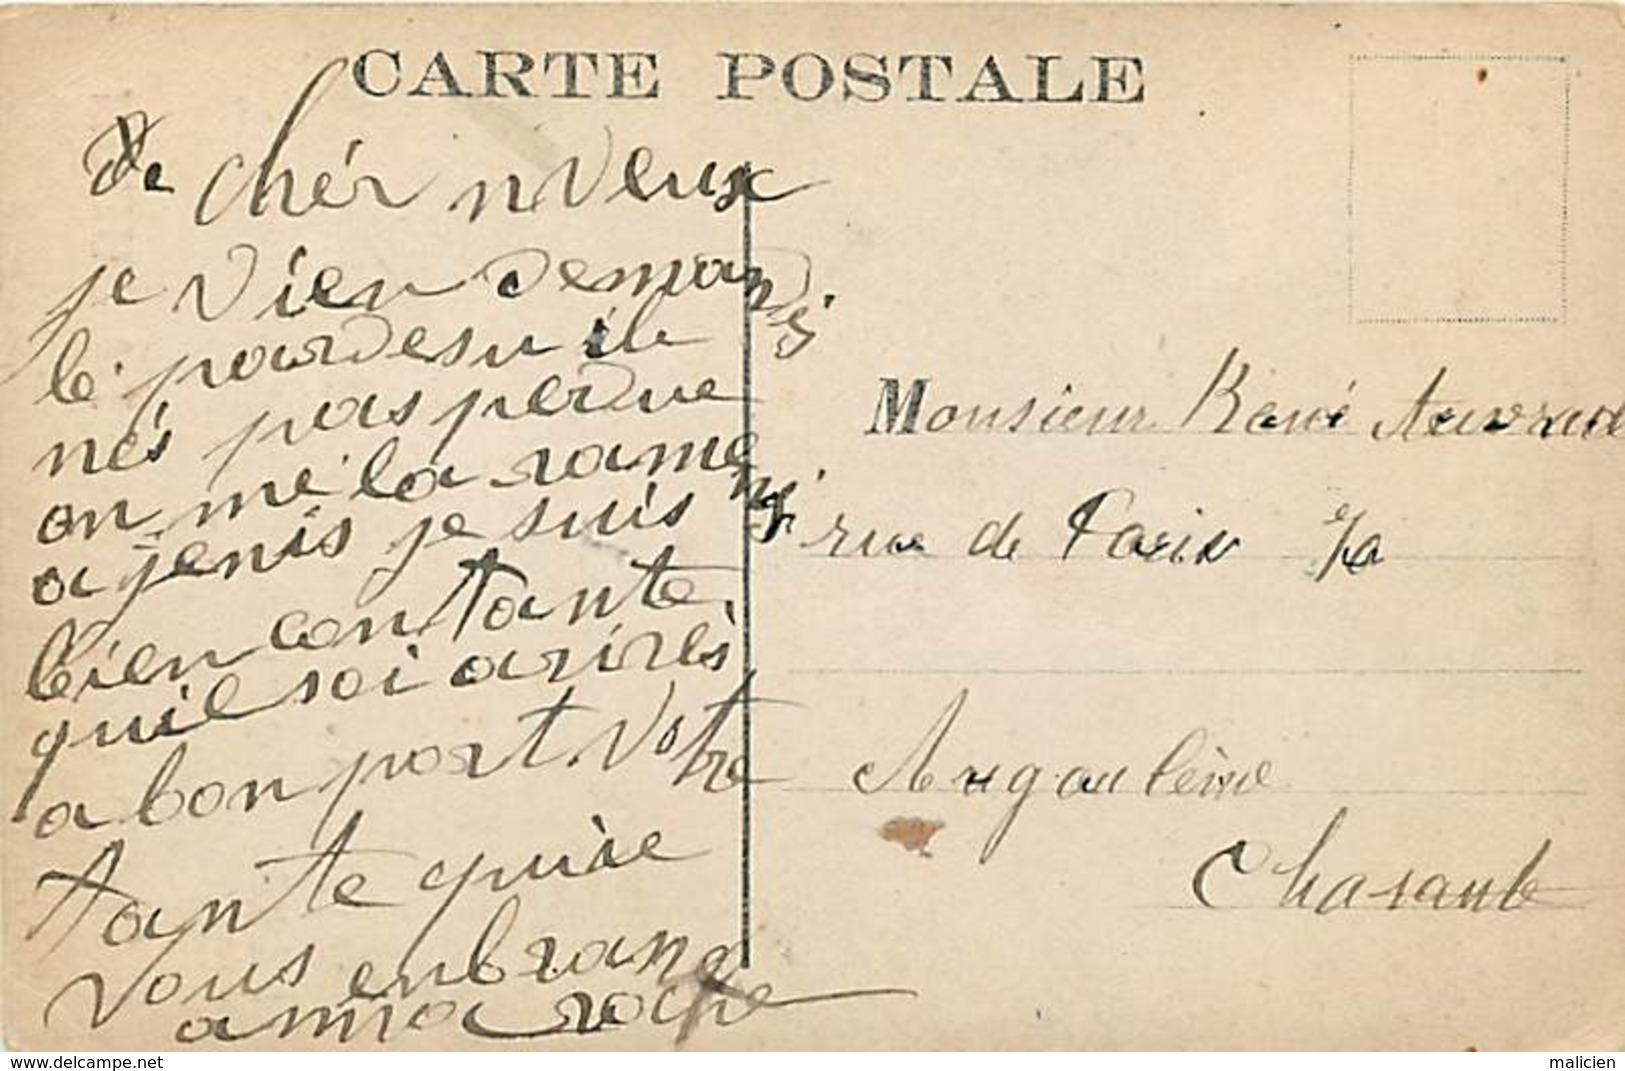 CARTE POSTALE
chér niveux
je vien demandé
le pardesu il
nés pas perdue
on mé la ramené
a jenis je suis
bien contante
quil soi arirés
a bon port Votre
tante quie
vous enbrans
anna roche
Monsieur René Auvrard
rue de Paris 70
Angoulême
Charante
www.delcampe.net
malicien